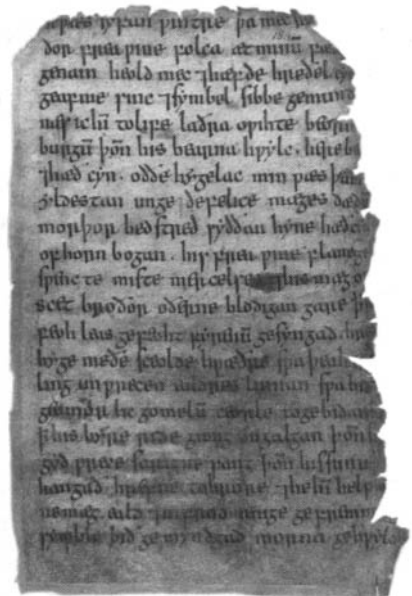 wæs syfan wintre þa mec sin
dor frea wine folca æt minū fæ
genam heold mec ⁊ hæfde hreðel cy
geaf me sinc ⁊ symbel sibbe gemun
næs ic hī to life laðra owihte beorn
burgū þōn his bearna hwylc · here be
⁊ hæð cyn · oððe hygelac min wæs þam
yldestan unge defelice mæges dæd
morþor bed stred syððan hyne hæð c
of horn bogan · his frea wine flane ge
miste mercelses ⁊ his mæg o
scet broðor oðerne blodigan gare þ
feoh leas gefeoht fyrenū gesyngad hre
hyge meðe sceolde hwæðre swa þeah
ling un wrecen ealdres linnan swa bið
geomor lic gomelū ceorle to gebidan
þ his byre ride giong on galgan þōn
gyd wrece sarigne þōn his sunu
hangað hrefne to hroðre ⁊ he hī helpe
ne mæg eald ⁊ in frod ænige gefremman
symble bið ge myndgad morna gehwylc